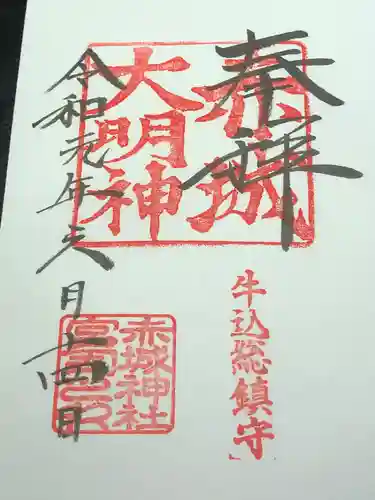 奉拝
赤城
大明神
牛込総鎮守
赤城神社
令和元年
月十四日